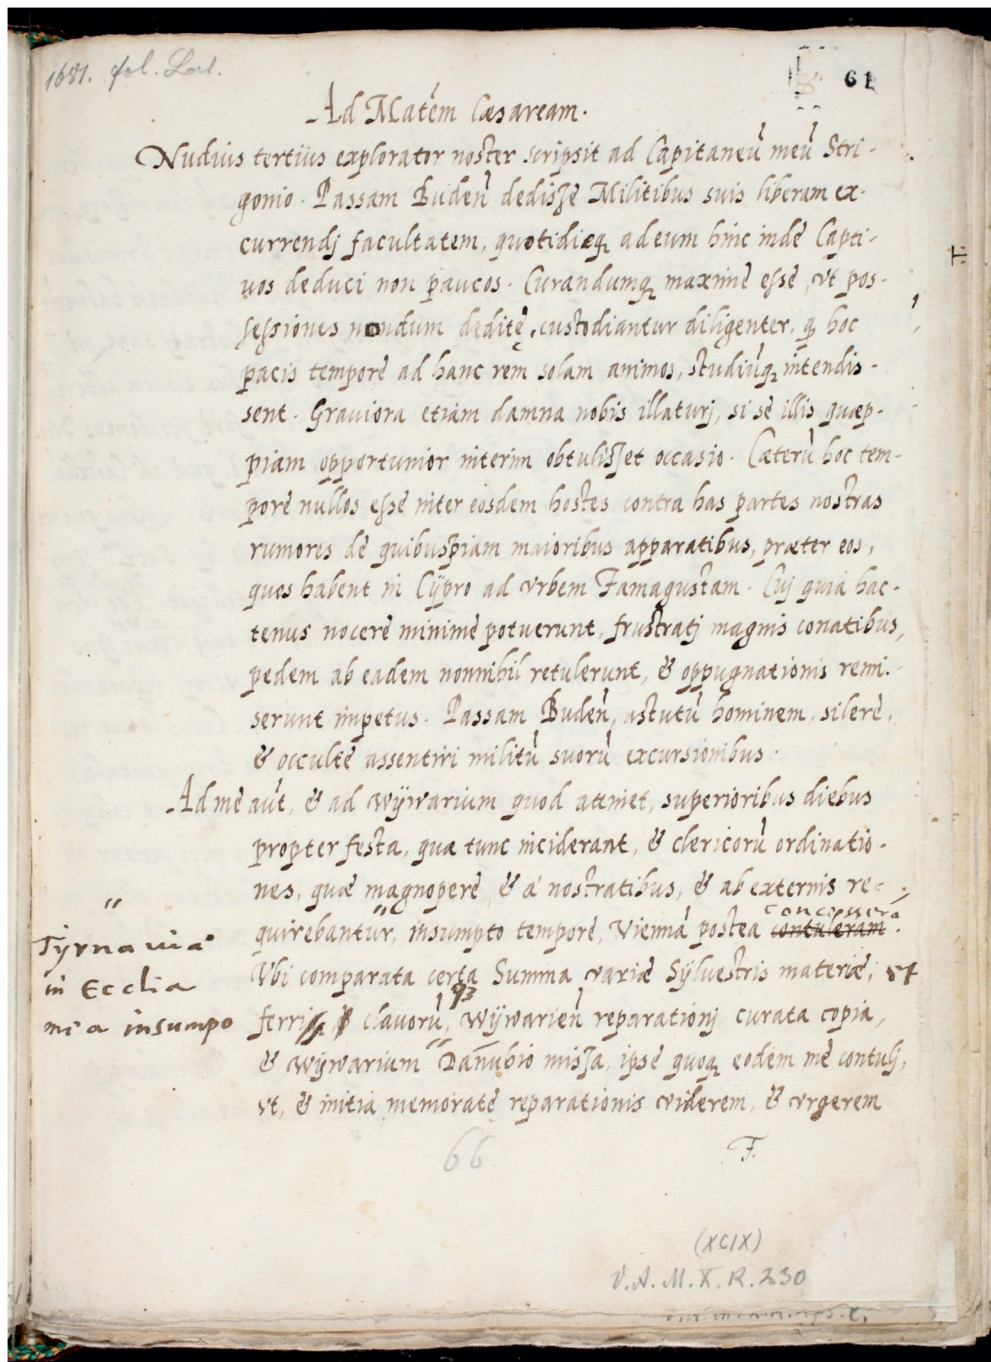 1681. fol. Lat.
61
Ad Matem Cæsaream.
Nudius tertius explorator noster scripsit ad Capitaneũ meũ Stri-
gonio. Passam Budeñ dedisse Militibus suis liberam ex-
currendj facultatem, quotidieq, ad eum hinc inde Capti-
vos deduci non paucos. Curandumq, maxime esse, vt pos-
sessiones nondum deditę, custodiantur diligenter, q, hoc
pacis tempore ad hanc rem solam animos, studiũq, intendis-
sent. Grauiora etiam damna nobis illaturj, si se illis quæp-
piam opportunior interim obtulisset occasio. Cæterũ hoc tem-
pore nullos esse inter eosdem hostes contra has partes nostras
rumores de quibuspiam maioribus apparatibus, præter eos,
quos habent in Cÿpro ad vrbem Famagustam. Cuj quia hac-
tenus nocere minime potuerunt, frustratj magnis conatibus,
pedem ab eadem nonnihil retulerunt, & oppugnationis remi-
serunt impetus. Passam Budeñ, astutũ hominem, silere,
& occulte assentiri militũ suorũ excursionibus.
Ad me aũt, & ad Wÿwarium quod attinet, superioribus diebus
propter festa, quæ tunc inciderant, & clericorũ ordinatio-
nes, quæ magnopere, & á nostratibus, & ab externis re-
concesserã
quirebantur, insumpto tempore, Viennã postea contuleram.
Tyrnauia
in Ecclia
mea insumpo
Vbi comparata certa Summa variæ Sÿluestris materiæ, et
ferri, clavorũq3, Wÿwarieñ reparationj curata copia,
& Wÿwarium Danubio missa, ipse quoq, eodem me contulj,
vt, & initia memoratę reparationis viderem, & vrgerem
F.
66
(XCIX)
V. A. M. X. R. 230